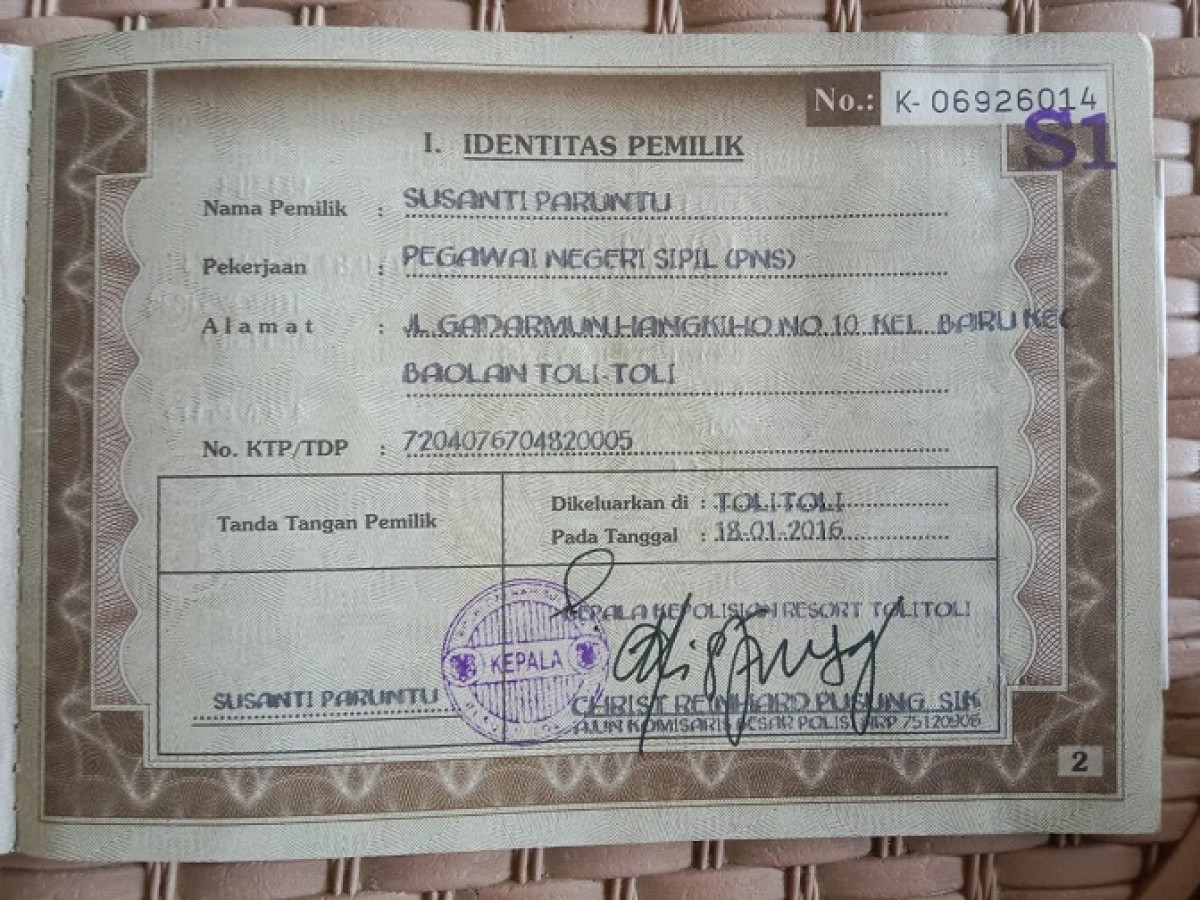 No.: K- 06926014
S1
I. IDENTITAS PEMILIK
Nama Pemilik : SUSANTI PARUNTU
Pekerjaan : PEGAWAI NEGERI SIPIL (PNS)
Alamat : JL. GADARMUN HANGKIHO NO 10 KEL. BARU KEC
BAOLAN TOLI-TOLI
No. KTP/TDP : 7204076704820005
Tanda Tangan Pemilik
Dikeluarkan di : TOLITOLI
Pada Tanggal : 18-01-2016
KEPALA KEPOLISIAN RESORT TOLITOLI
KEPALA
SUSANTI PARUNTU
CHRIST REINHARD PUSUNG, SIK
AJUN KOMISARIS BESAR POLISI NRP 75120906
2